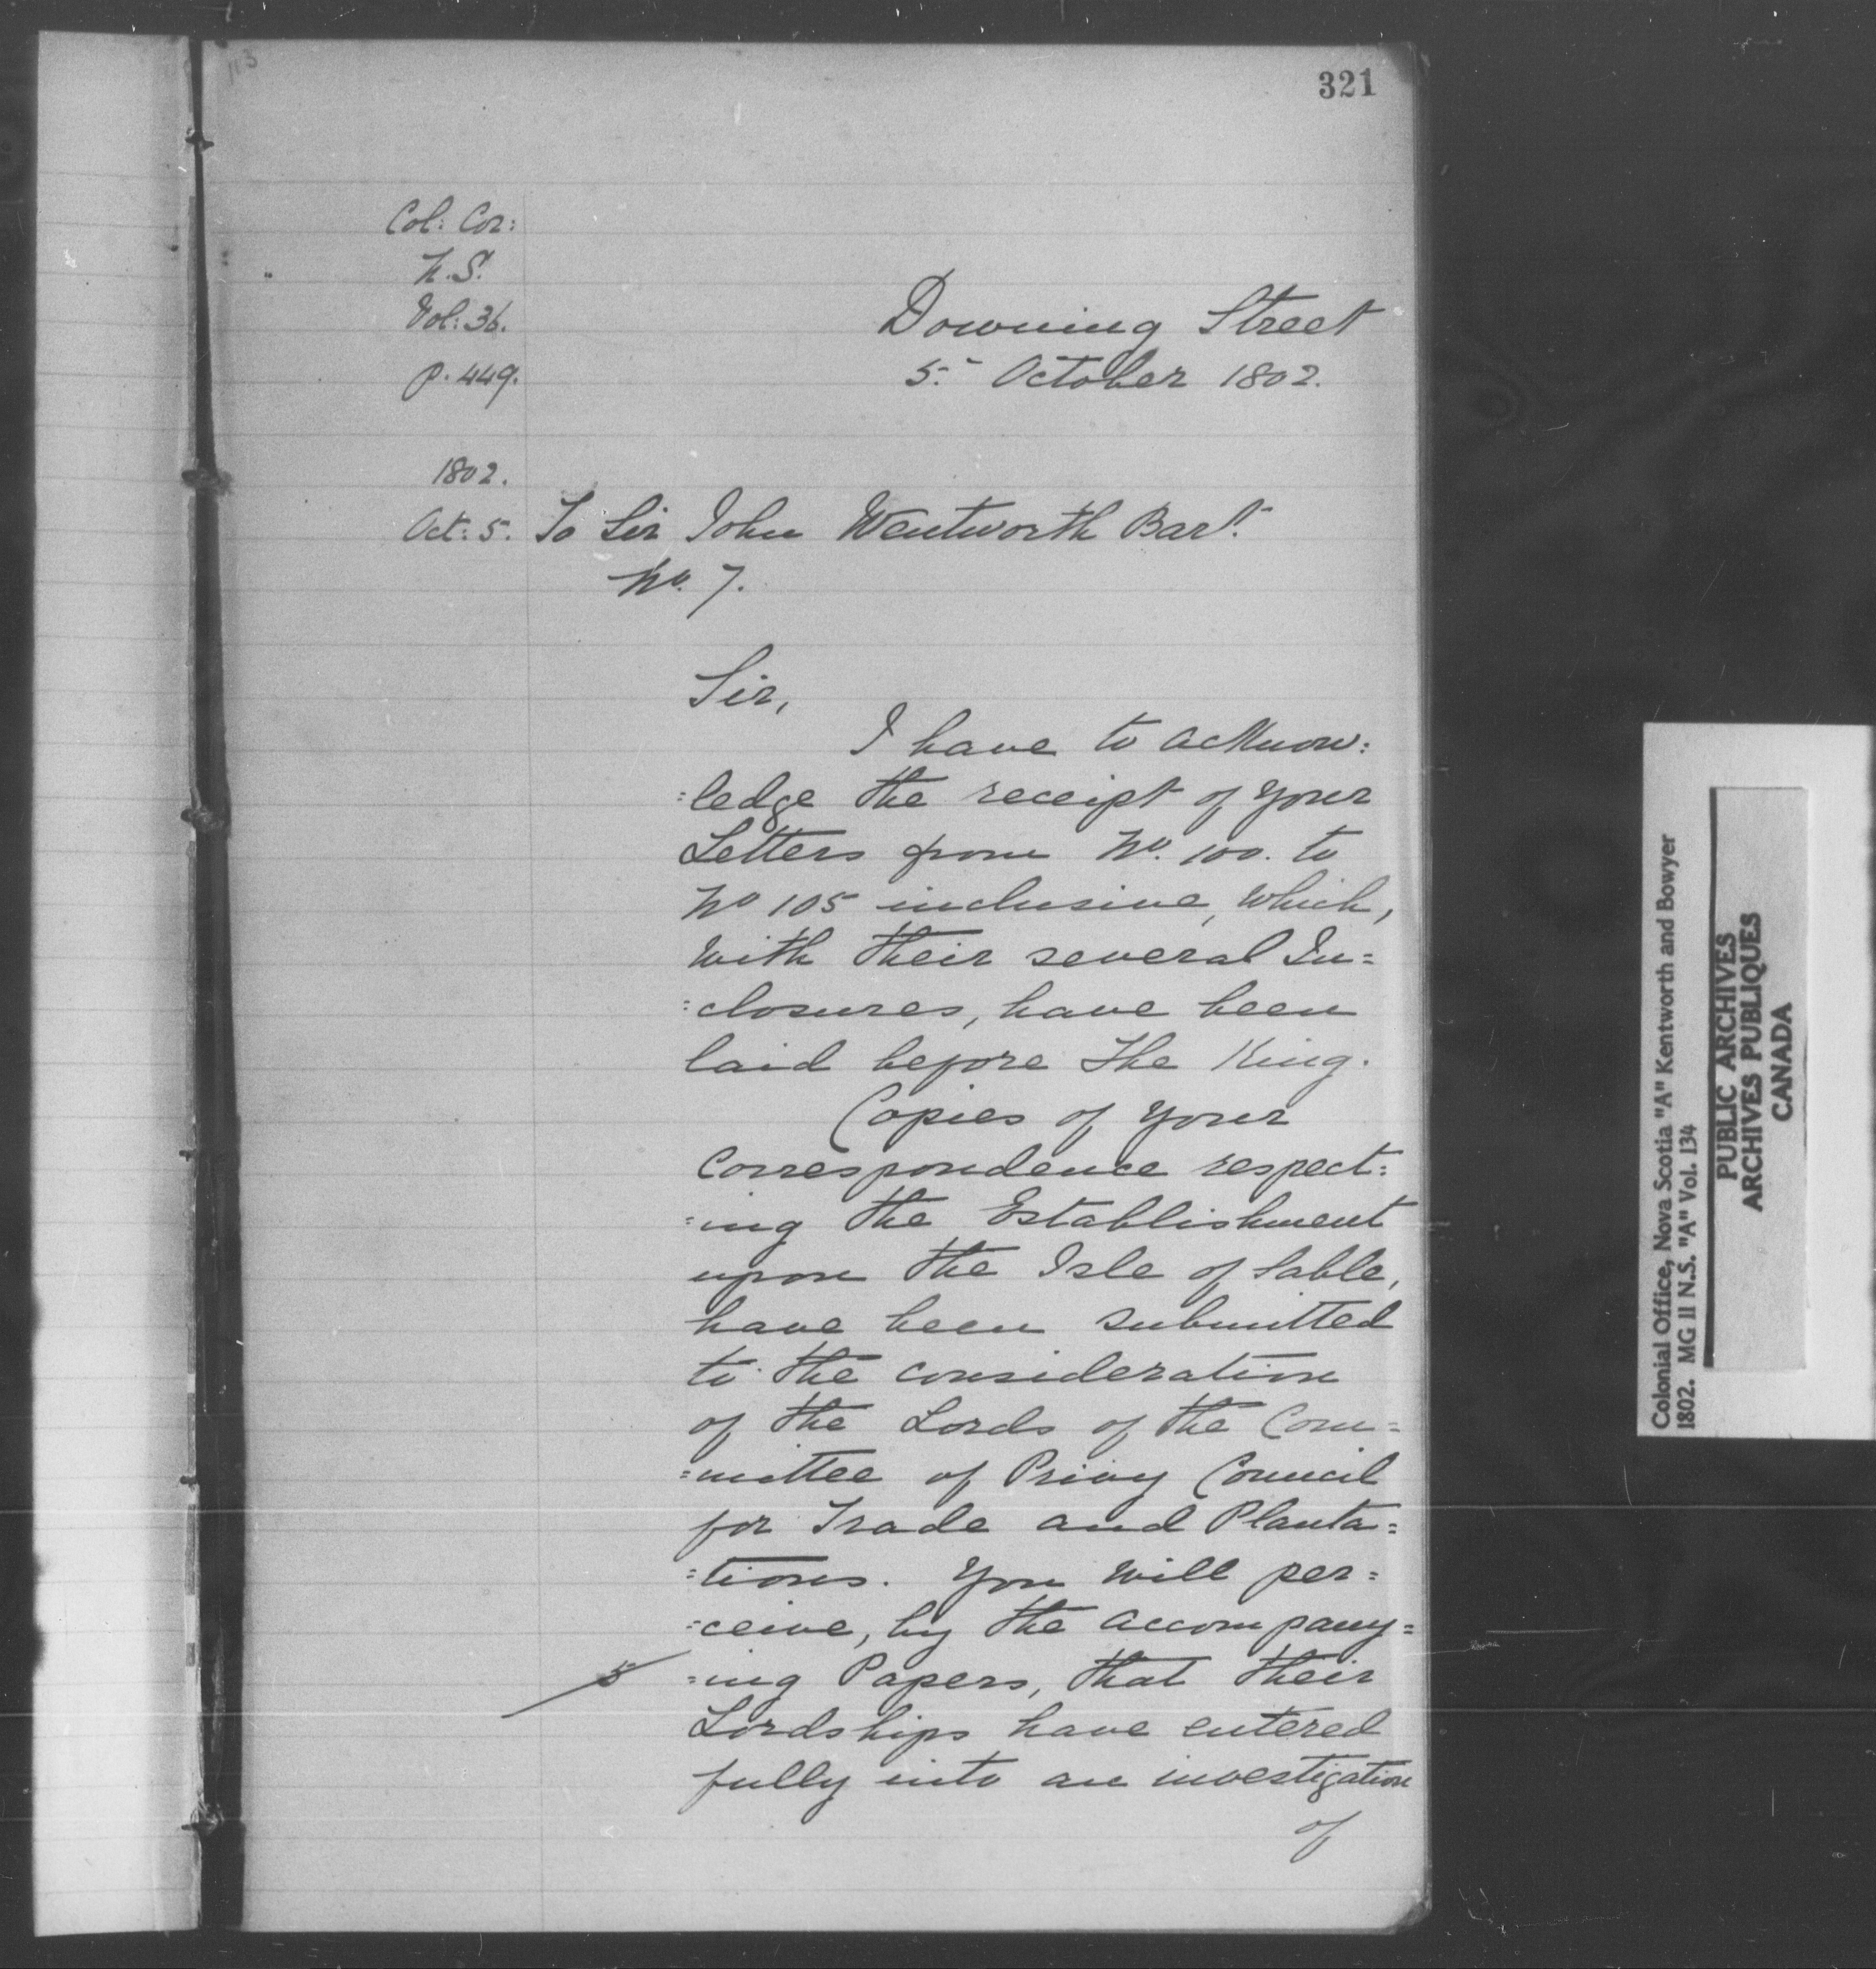 113
321
Col: Cor:
N.S.
Vol: 36.
p. 449.
Downing Street
5.- October 1802.
1802.
Oct: 5.
To Sir John Wentworth Bart.
No. 7.
Sir,
I have to acknow:
:ledge the receipt of your
Letters from No. 100. to
No 105 inclusive, which,
with their several In=
:closures, have been
laid before the King.
Copies of your
Correspondence respect:
:ing the Establishment
upon the Isle of Sable,
have been submitted
to the consideration
of the Lords of the Com=
=mittee of Privy Council
for Trade and Planta=
=tions. You will per=
=ceive, by the accompany=
5
=ing Papers, that their
Lordships have entered
fully into an investigation
of
Colonial Office, Nova Scotia "A" Kentworth and Bowyer
1802. MG II N.S. "A" Vol. 134
PUBLIC ARCHIVES
ARCHIVES PUBLIQUES
CANADA